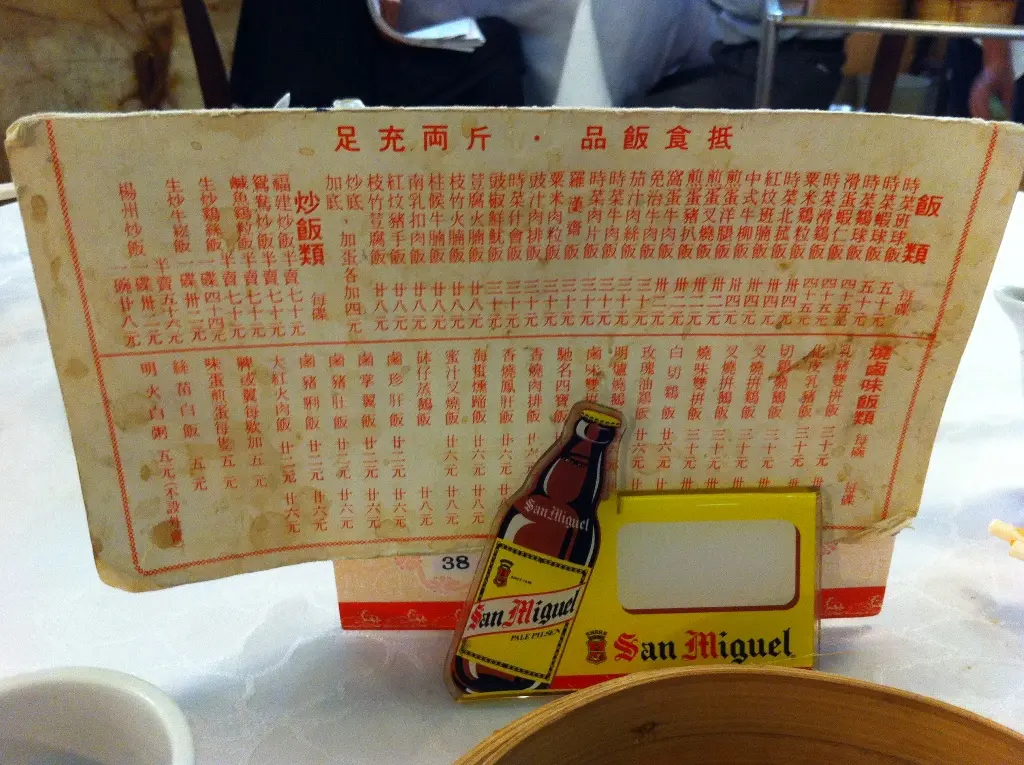 抵食飯品・斤両充足
飯類 每碟
時菜班球飯 五十元
時菜蝦球飯 五十元
時菜鷄球飯 四十五元
滑蛋蝦仁飯 四十五元
時菜滑鷄飯
粟米鷄粒飯 卅四元
時菜北菰飯 卅四元
紅炆班腩飯 卅四元
中式牛柳飯 卅四元
煎蛋洋腿飯 卅四元
煎蛋叉燒飯 卅二元
煎蛋豬扒飯 卅二元
窩蛋牛肉飯 卅二元
免治牛肉飯 卅二元
茄汁肉絲飯 三十元
時菜牛肉飯 三十元
時菜肉片飯 三十元
羅漢齋飯 三十元
粟米肉粒飯 三十元
豉汁肉排飯 三十元
時菜什會飯 三十元
豉椒鮮魷飯 三十元
荳腐火腩飯 廿八元
枝竹火腩飯 廿八元
柱候牛腩飯 廿八元
南乳扣肉飯 廿八元
紅炆豬手飯 廿八元
枝竹荳腐飯 廿八元
炒底、加蛋各加四元
加底、
炒飯類 每碟
福建炒飯 半賣七十元
鴛鴦炒飯 半賣七十元
鹹魚鷄粒飯 半賣七十元
生炒鷄絲飯 一碟四十四元
生炒牛崧飯 一碟卅二元 半賣五十六元
楊州炒飯 一碗廿八元
燒鹵味飯類 每碗 每碟
乳豬雙拼飯 三十元
化皮乳豬飯 三十元
切鷄
叉燒拼鵝飯 三十元
燒鵝拼鷄飯 三十元
燒味雙拼飯
白切鷄飯 廿六元
玫瑰油鷄飯 廿六元
明爐燒鵝
鹵味雙
馳名四寶飯
香燒肉排飯
香燒鳳肝飯 廿六元
海蜇燻蹄飯 廿六元 廿八元
蜜汁叉燒飯 廿六元 廿八元
砵仔蒸鵝飯 廿六元 廿八元
鹵珍肝飯 廿二元 廿六元
鹵掌翼飯 廿二元 廿六元
鹵豬肚飯 廿二元 廿六元
鹵豬脷飯 廿二元 廿六元
大紅火肉飯 廿二元 廿六元
脾或翼每欵加五元
味蛋煎蛋每隻五元
絲苗白飯 五元
明火白粥 五元(不設外賣
38
San Miguel
San Miguel
PALE PILSEN
San Miguel